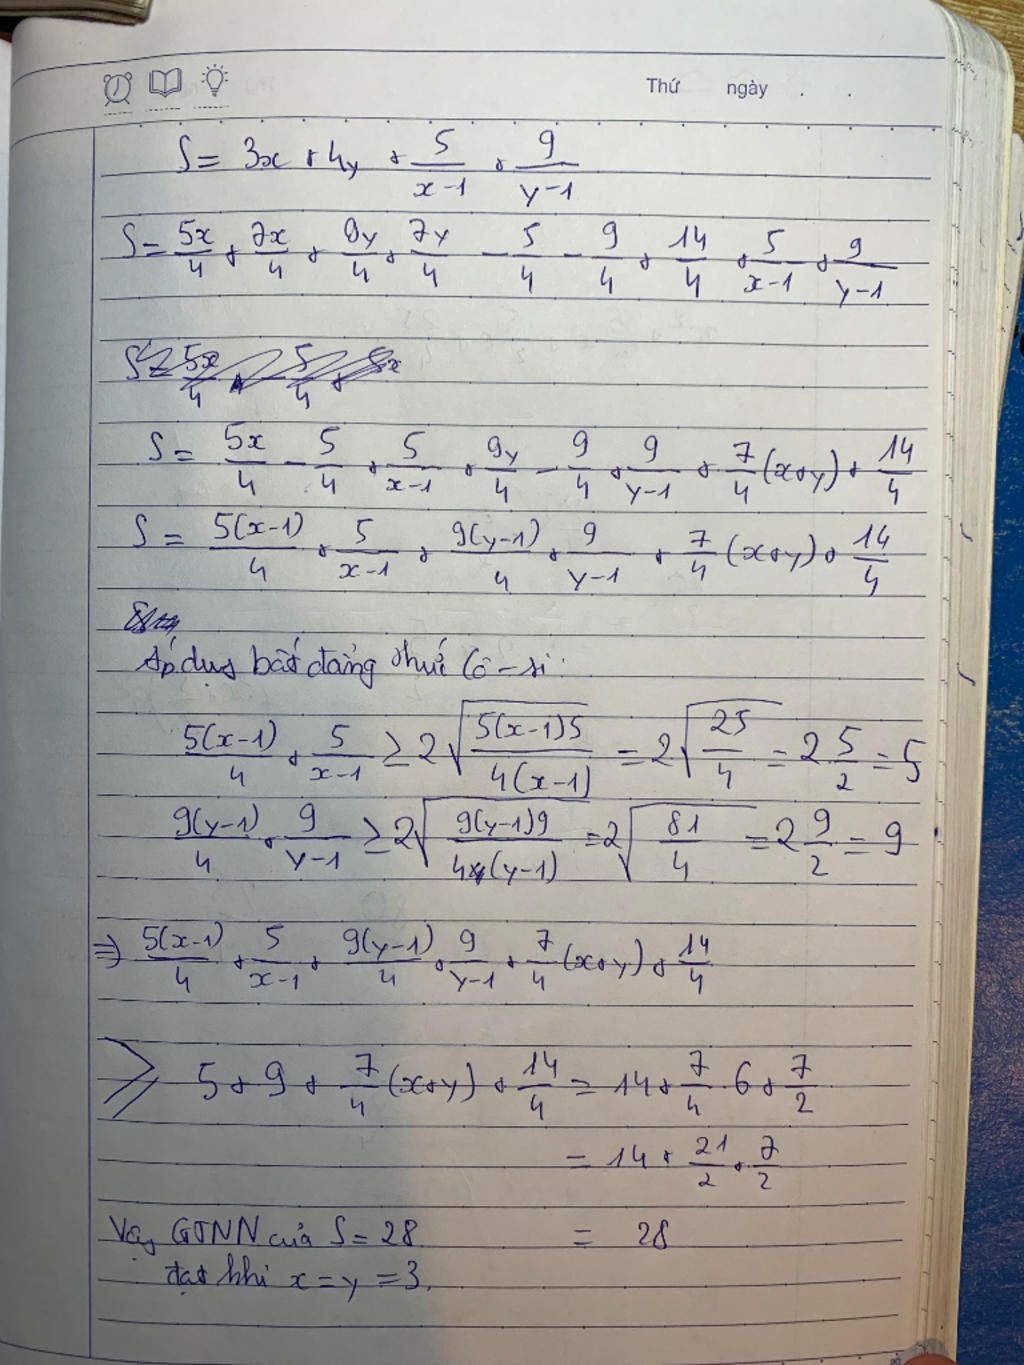 Thứ ngày . .
S = 3x + 4y + 5/(x-1) + 9/(y-1)
S = 5x/4 + 7x/4 + 9y/4 + 7y/4 - 5/4 - 9/4 + 14/4 + 5/(x-1) + 9/(y-1)
S = 5x/4 - 5/4 + 5/(x-1) + 9y/4 - 9/4 + 9/(y-1) + 7/4 (x+y) + 14/4
S = 5(x-1)/4 + 5/(x-1) + 9(y-1)/4 + 9/(y-1) + 7/4 (x+y) + 14/4
Áp dụng bất đẳng thức Cô-si:
5(x-1)/4 + 5/(x-1) ≥ 2√(5(x-1)5/(4(x-1))) = 2√(25/4) = 2 5/2 = 5
9(y-1)/4 + 9/(y-1) ≥ 2√(9(y-1)9/(4(y-1))) = 2√(81/4) = 2 9/2 = 9
⇒ 5(x-1)/4 + 5/(x-1) + 9(y-1)/4 + 9/(y-1) + 7/4 (x+y) + 14/4
≥ 5 + 9 + 7/4 (x+y) + 14/4 = 14 + 7/4 6 + 7/2
= 14 + 21/2 + 7/2
Vậy GTNN của S = 28 = 28
đạt khi x = y = 3.